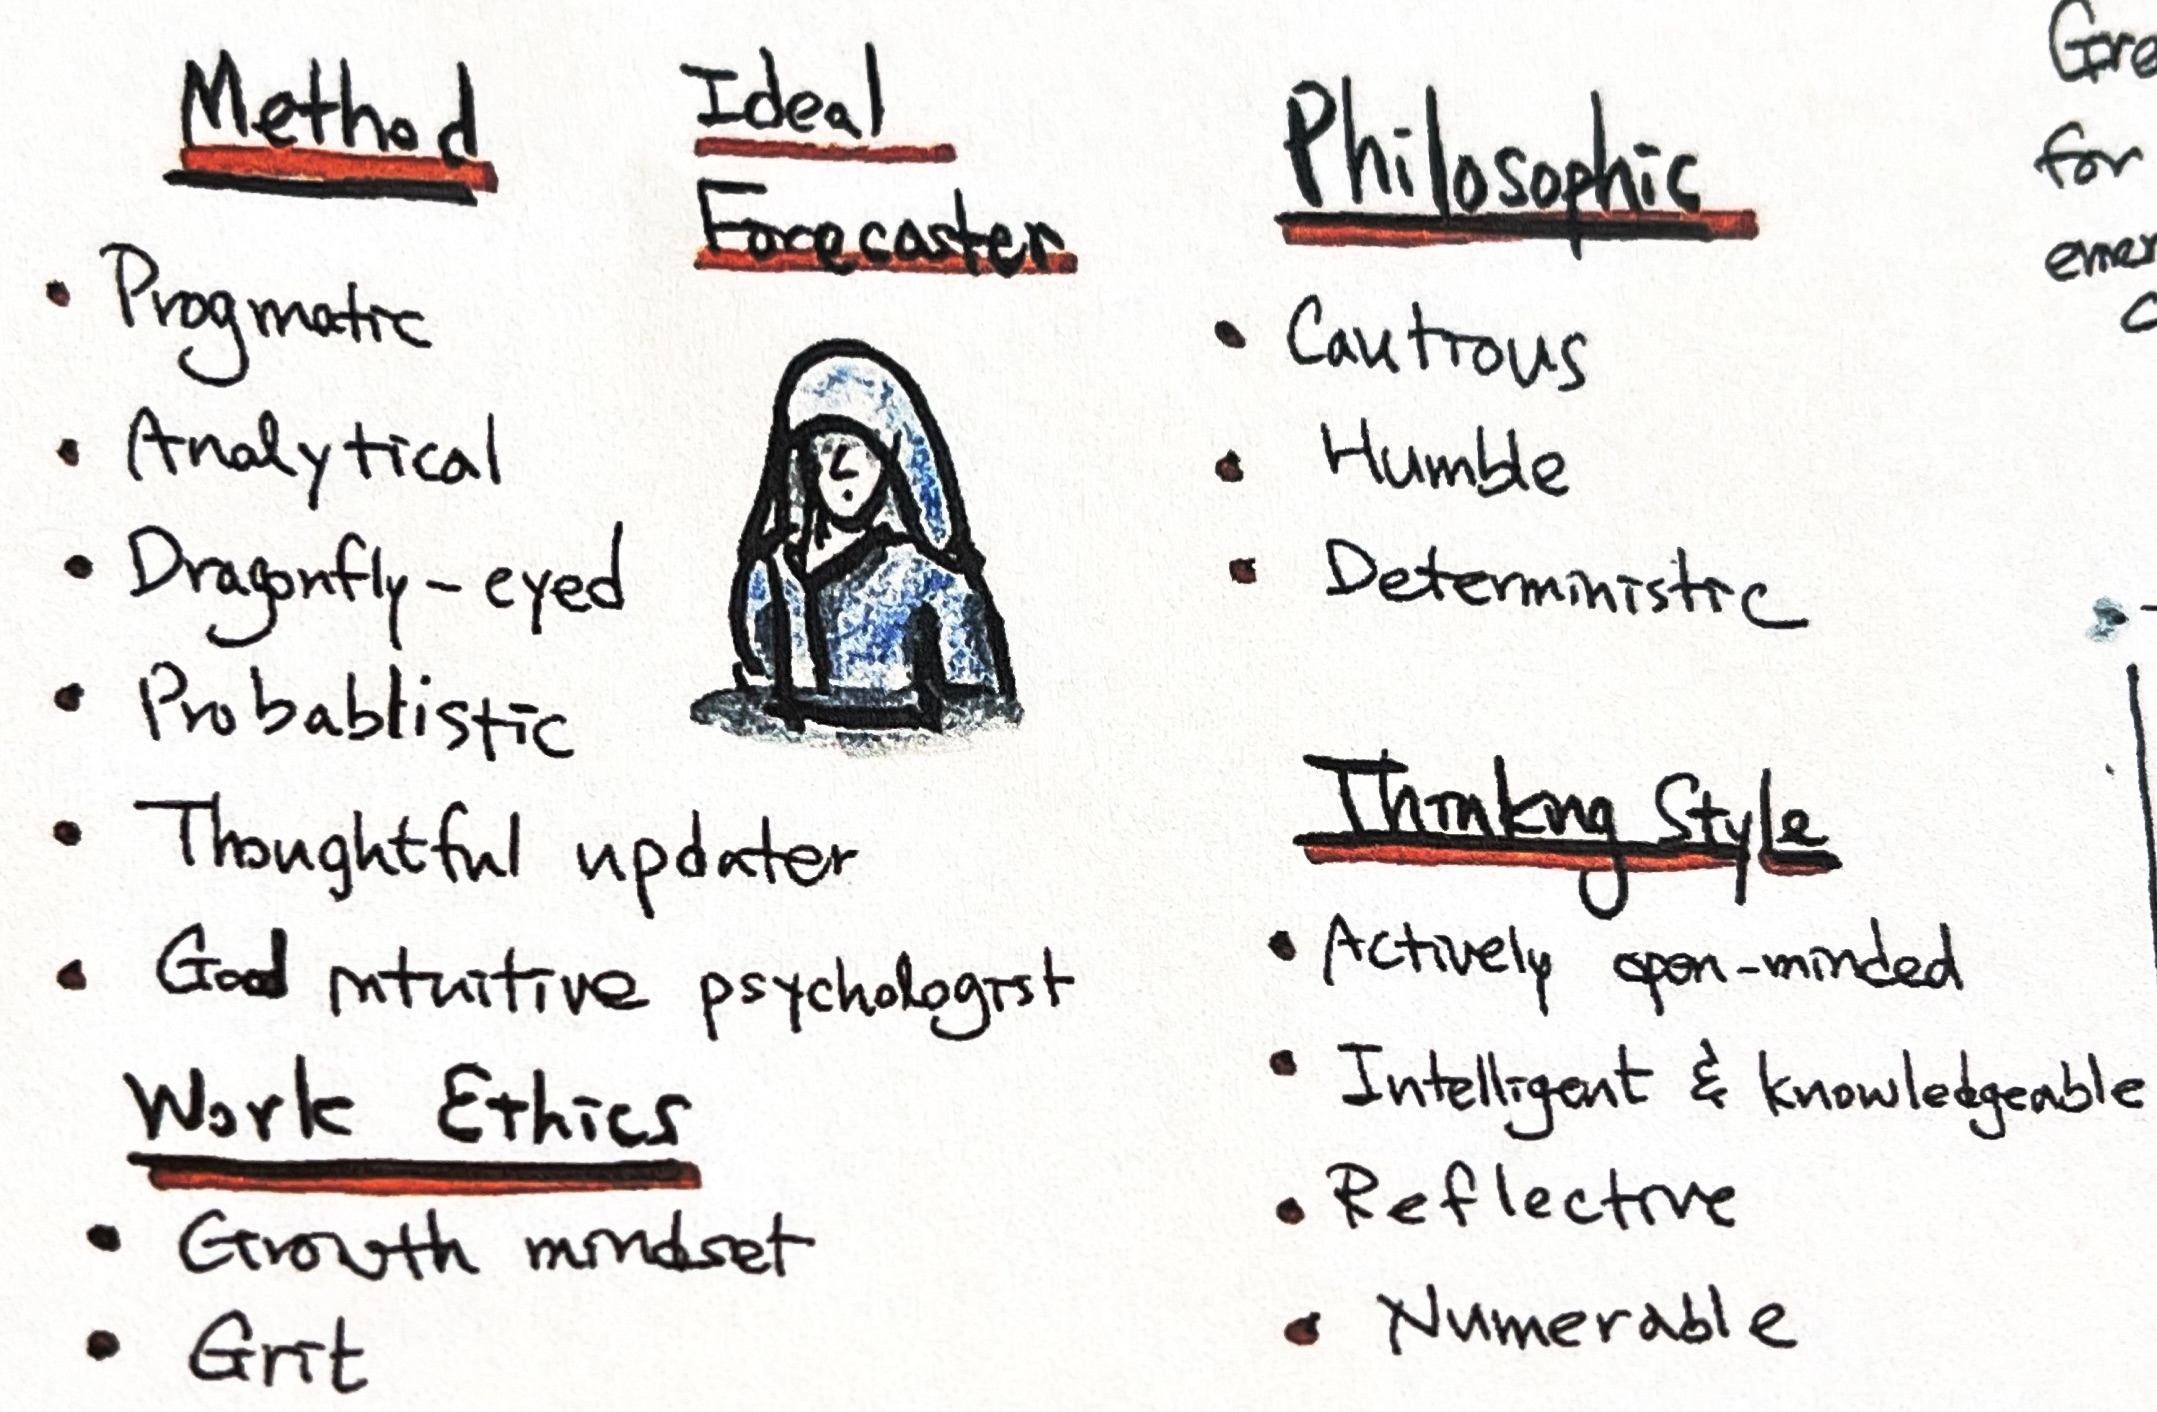 Method
• Pragmatic
• Analytical
• Dragonfly-eyed
• Probablistic
• Thoughtful updater
• Good intuitive psychologist
Work Ethics
• Growth mindset
• Grit
Ideal
Forecaster
Philosophic
• Cautious
• Humble
• Deterministic
Thinking Style
• Actively open-minded
• Intelligent & knowledgeable
• Reflective
• Numerable
for